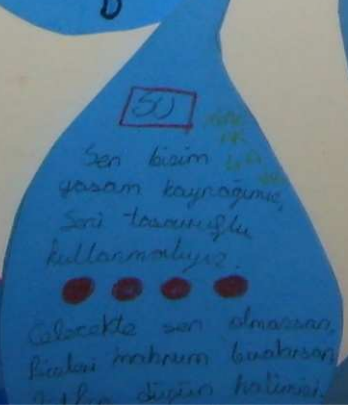 SU
Sen bizim
yaşam kaynağımız,
Seni tasarruflu
kullanmalıyız.
Gelecekte sen olmazsan,
Bizleri mahrum bırakırsan
düşün halimizi.